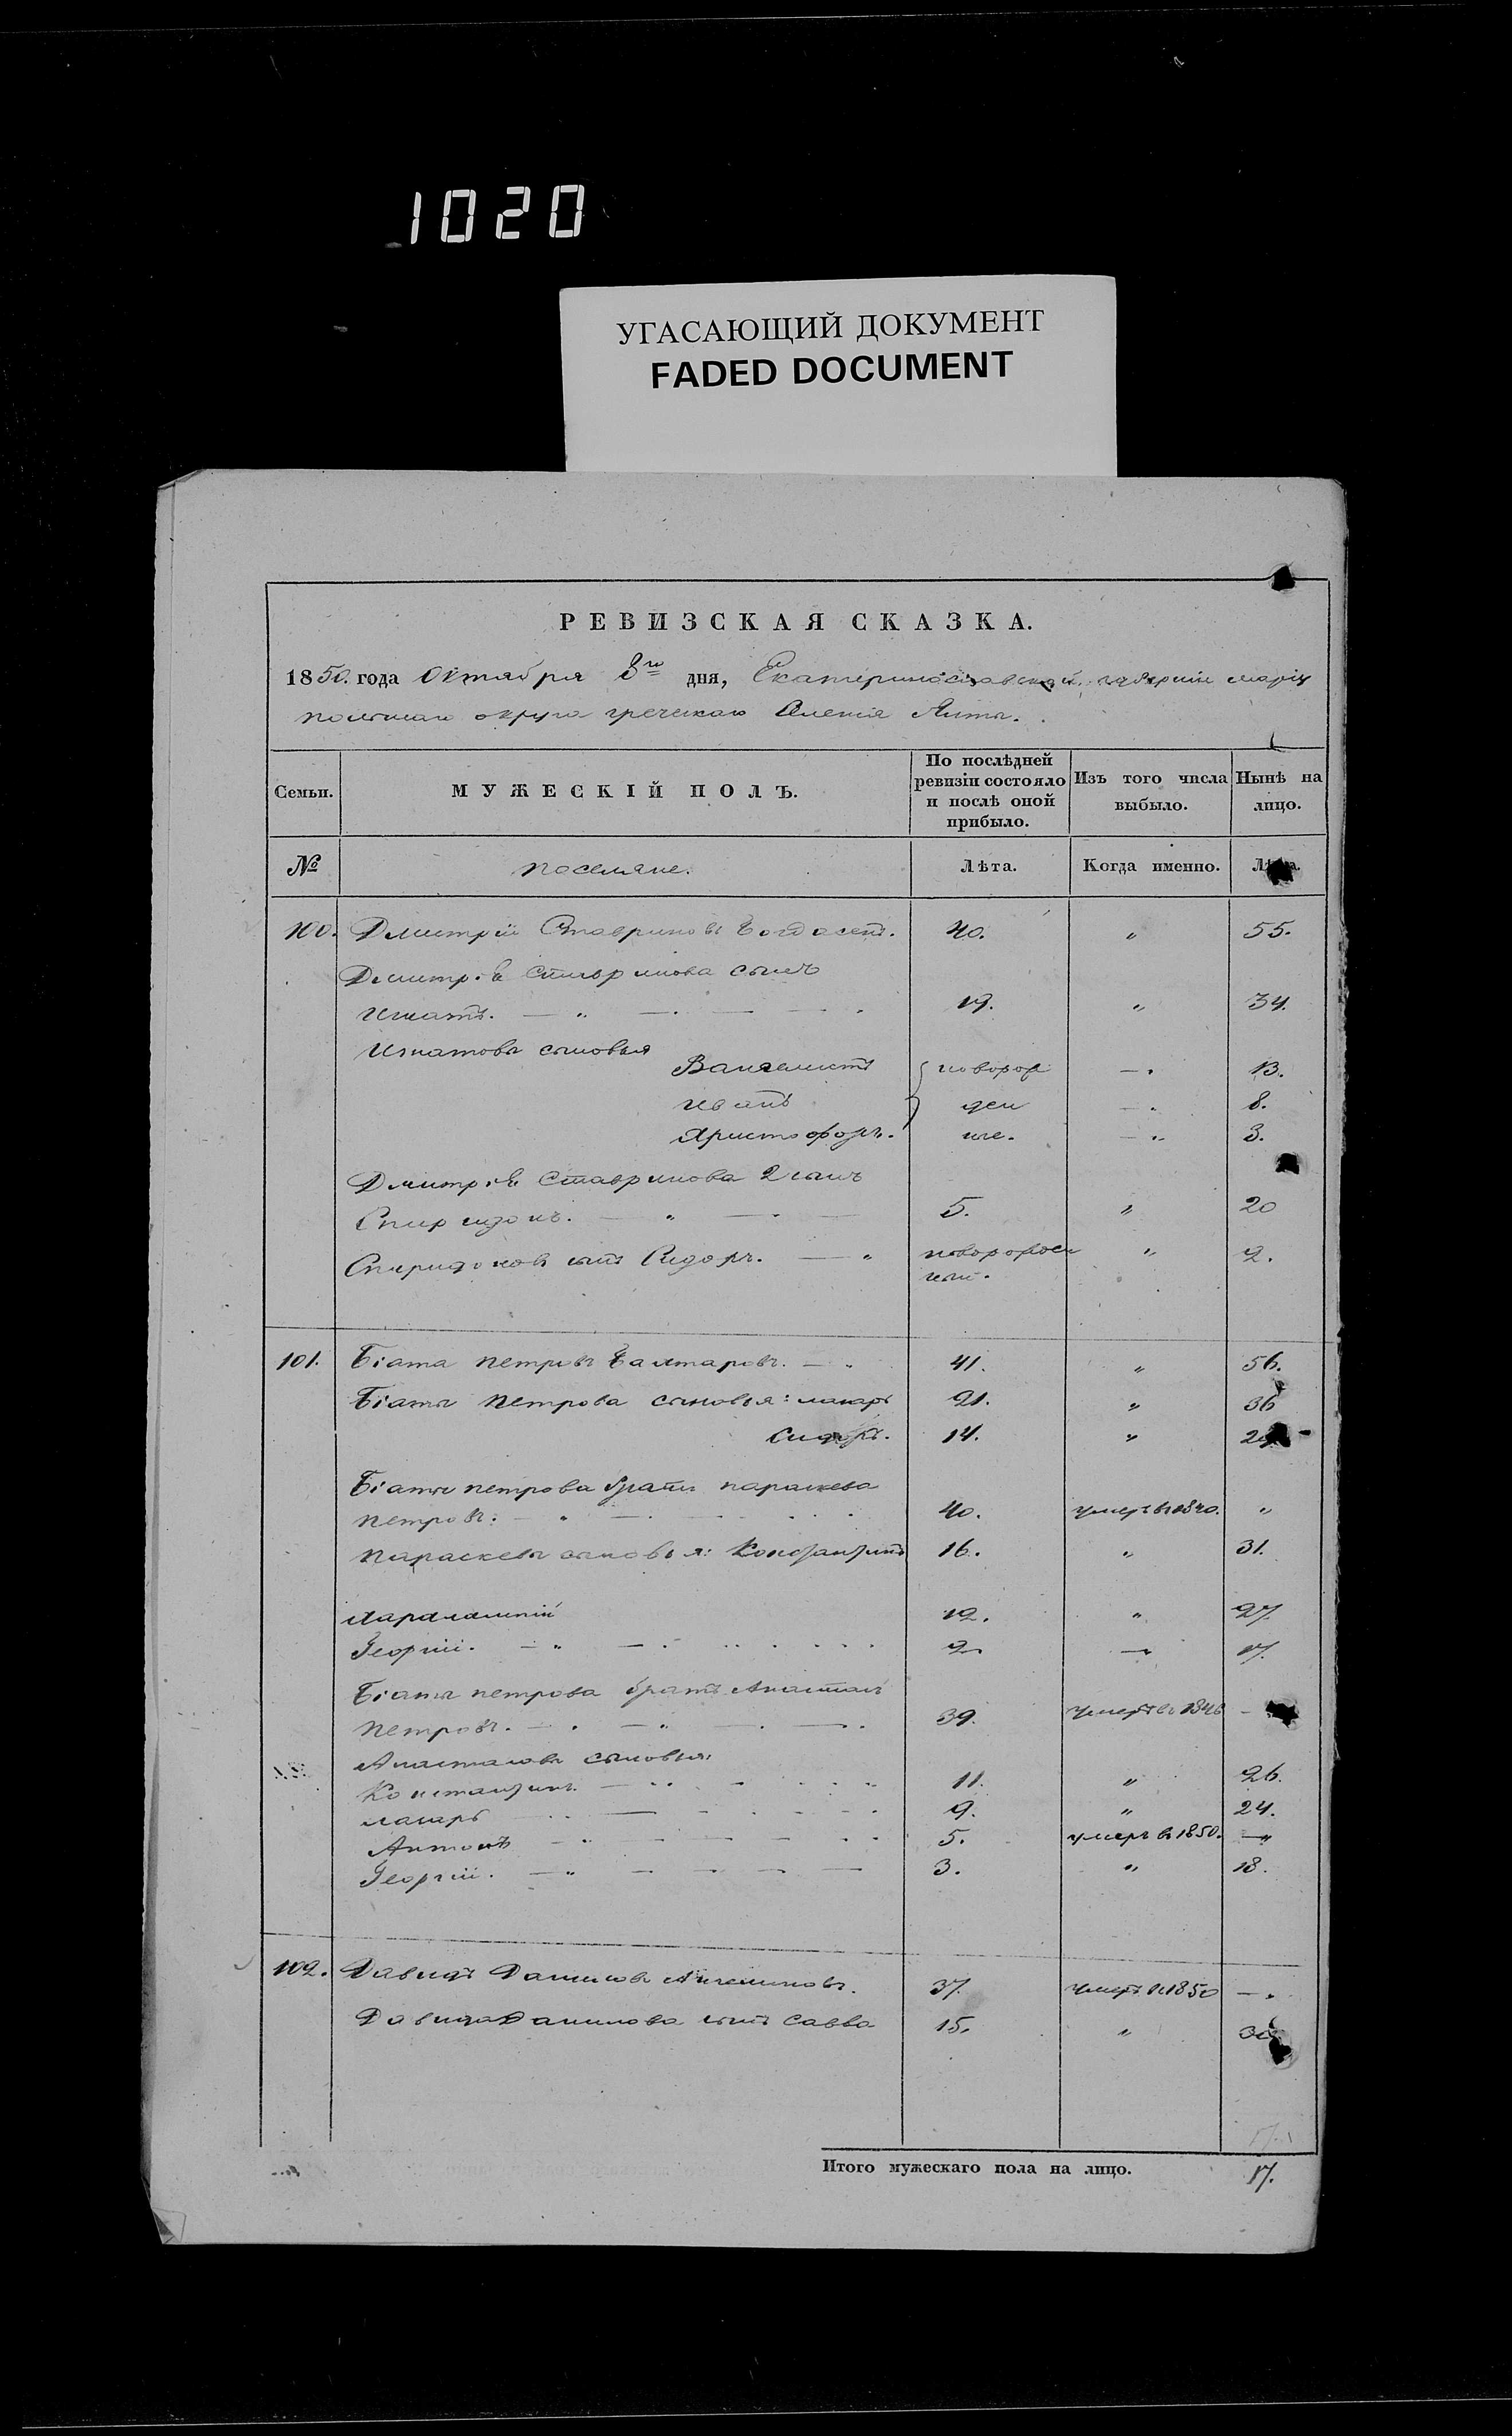 1020
УГАСАЮЩИЙ ДОКУМЕНТ
FADED DOCUMENT
РЕВИЗСКАЯ СКАЗКА.
1850. года Октября 8го дня, Екатеринославской губерніи маріу
польскаго округа греческаго Селенія Ялты.
Семьи. МУЖЕСКІЙ ПОЛЪ. По послѣдней ревизіи состояло и послѣ оной прибыло. Изъ того числа выбыло. Нынѣ на лицо.
№ поселяне. Лѣта. Когда именно. Лѣта.
100. Дмитрій Ставриновъ 40. " 55.
Дмитрія Ставринова сынъ
Игнатъ. — " — 19. " 34.
Игнатовы сыновья
Вангелистъ новорож — 13.
Иванъ ден — 8.
Христофоръ. ные. — 3.
Дмитрія Ставринова 2 сынъ
Спиридонъ. — " — 5. " 20
Спиридоновъ сынъ Сидоръ. — " новорожден " 2.
ный.
101. Біата петровъ Балтаровъ. — 41. " 56.
Біаты петрова сыновья: макаръ 21. " 36
Сидоръ. 14. " 29
Біаты петрова братъ параскева
петровъ. — " — 40. умеръ въ 1840. "
параскевы сыновья: Константинъ 16. " 31.
Харалампій 12. " 27.
Георгій. — " — 2. — 17.
Біаты петрова братъ Анастасъ
петровъ. — " — 39. умеръ въ 1846 —
Анастасовы сыновья:
Константинъ. — 11. " 26.
макаръ — 9. " 24.
Антонъ — " — 5. умеръ въ 1850. — "
Георгій. — " — 3. " 18.
102. Давидъ Даниловъ 37. умеръ въ 1850 —
Давида Данилова сынъ Савва 15. " 30
Итого мужескаго пола на лицо. 17.